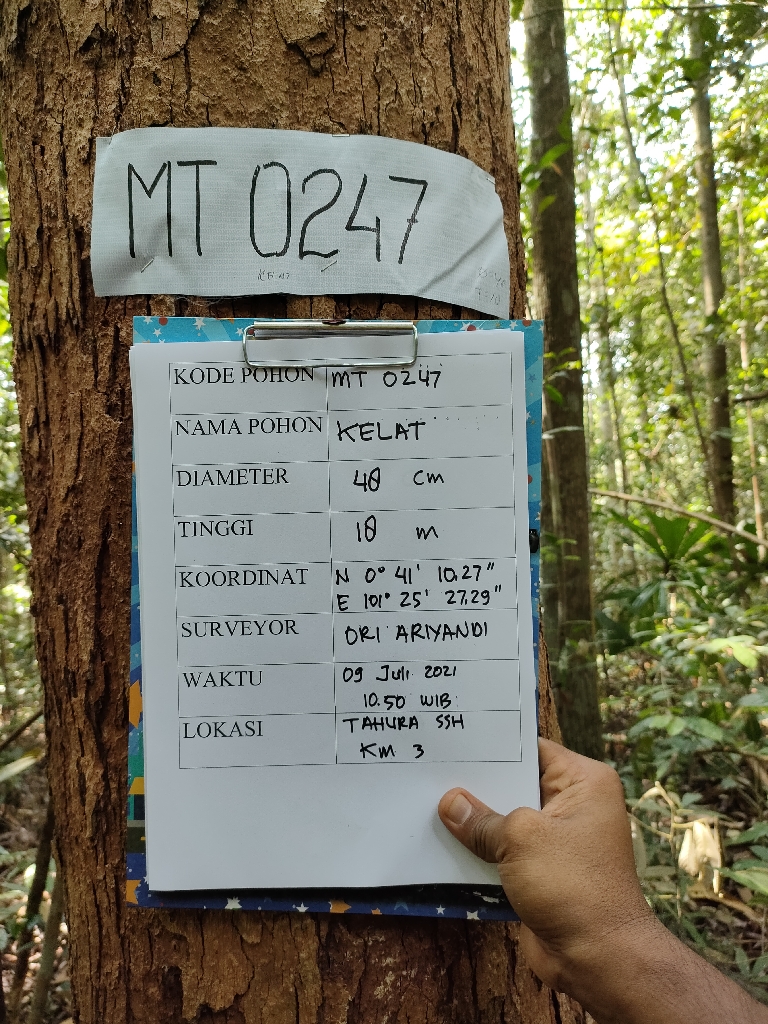 MT 0247
KODE POHON MT 0247
NAMA POHON KELAT
DIAMETER 40 cm
TINGGI 10 m
KOORDINAT N 0° 41' 10,27"
E 101° 25' 27,29"
SURVEYOR ORI ARIYANDI
WAKTU 09 Juli 2021
10.50 WIB
LOKASI TAHURA SSH
KM 3